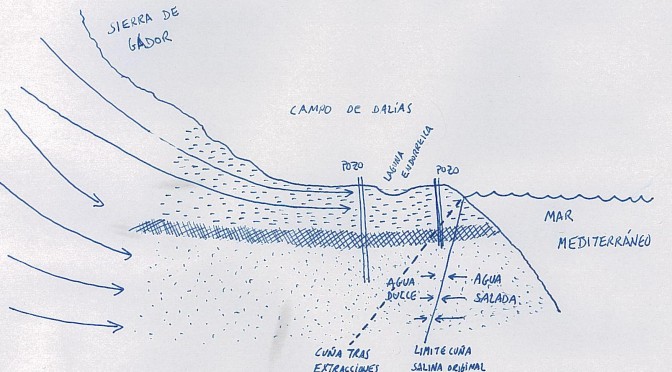 SIERRA DE
GADOR
CAMPO DE DALÍAS
POZO
LAGUNA
ENDORREICA
POZO
MAR
MEDITERRÁNEO
AGUA
DULCE
AGUA
SALADA
CUÑA TRAS
EXTRACCIONES
LIMITE CUÑA
SALINA ORIGINAL